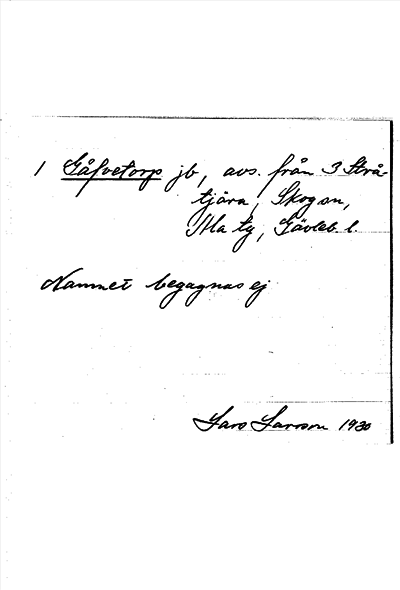 1 Gåfvetorp jb, avs. från 3 Strå-
tjära, Skog sn,
Ala tg, Gävleb. l.
Namnet begagnas ej
Lars Larsson 1930